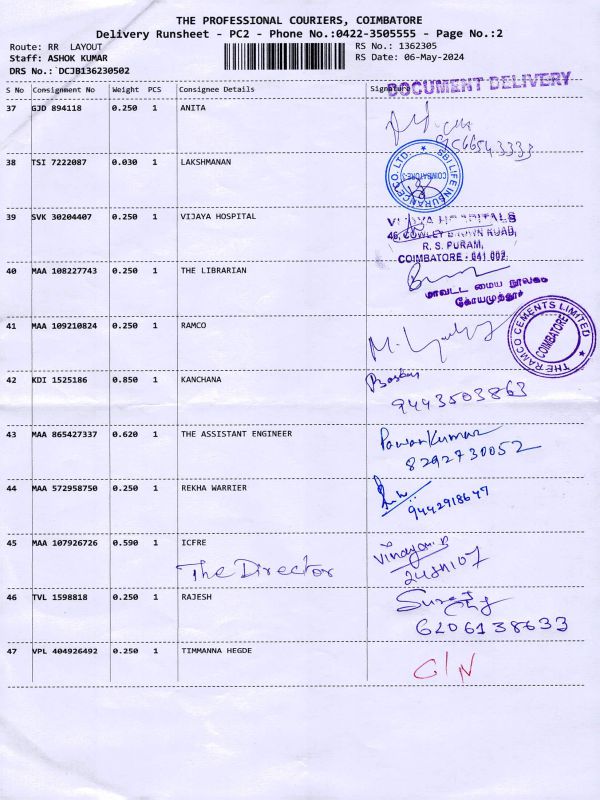 THE PROFESSIONAL COURIERS, COIMBATORE
Delivery Runsheet - PC2 - Phone No.:0422-3505555 - Page No.:2
Route: RR LAYOUT
Staff: ASHOK KUMAR
DRS No.: DCJB136230502
RS No.: 1362305
RS Date: 06-May-2024
S No Consignment No Weight PCS Consignee Details Signature
DOCUMENT DELIVERY
37 GJD 894118 0.250 1 ANITA
38 TSI 7222087 0.030 1 LAKSHMANAN
SBI LIFE INSURANCE CO. LTD.
COIMBATORE-3
39 SVK 30204407 0.250 1 VIJAYA HOSPITAL
VIJAYA HOSPITALS
46, COWLEY BROWN ROAD,
R. S. PURAM,
COIMBATORE - 641 002.
40 MAA 108227743 0.250 1 THE LIBRARIAN
மாவட்ட மைய நூலகம்
கோயமுத்தூர்
41 MAA 109210824 0.250 1 RAMCO
THE RAMCO CEMENTS LIMITED
COIMBATORE
42 KDI 1525186 0.850 1 KANCHANA
9443503863
43 MAA 865427337 0.620 1 THE ASSISTANT ENGINEER
Pawan Kumar
8292730052
44 MAA 572958750 0.250 1 REKHA WARRIER
9442918647
45 MAA 107926726 0.590 1 ICFRE
The Director
46 TVL 1598818 0.250 1 RAJESH
6206138633
47 VPL 404926492 0.250 1 TIMMANNA HEGDE
C/N